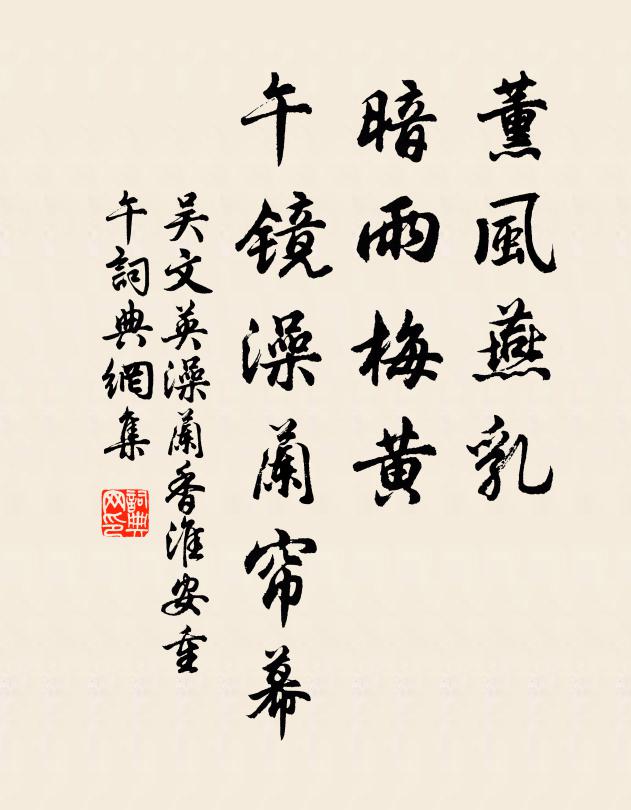 薰風燕乳
暗雨梅黄
午镜澡蘭帘幕
吴文英澡蘭香淮安重
午詞典網集
詞典
网印